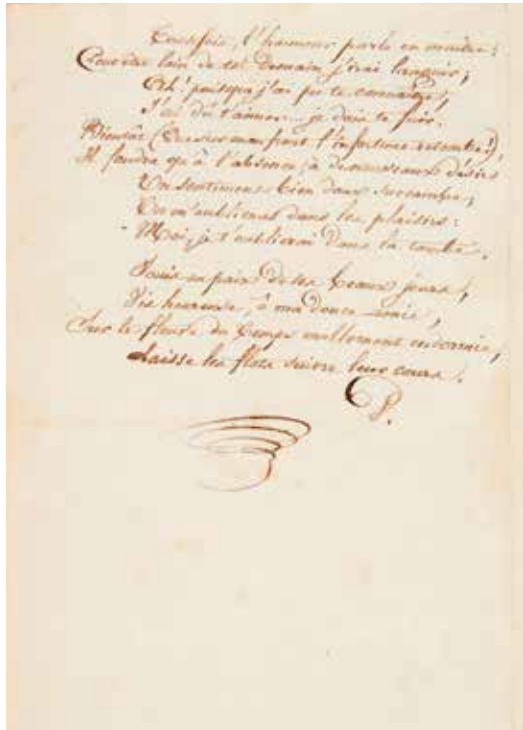 Toutefois, l'honneur parle en maître :
Peut-être loin de toi demain j'irai languir ;
Ah ! puisque j'ai pu te connaître,
J'ai dû t'aimer... je dois te fuir.
Bientôt (Que sur moi seul l'infortune retombe !)
Il faudra qu'à l'absence, à de nouveaux désirs
Un sentiment bien doux succombe ;
Tu m'oublieras dans les plaisirs :
Moi, je t'oublierai dans la tombe.
Jouis en paix de tes beaux jours ;
Vis heureuse, ô ma douce amie,
Sur le fleuve du temps mollement endormie,
Laisse les flots suivre leur cours.
P.